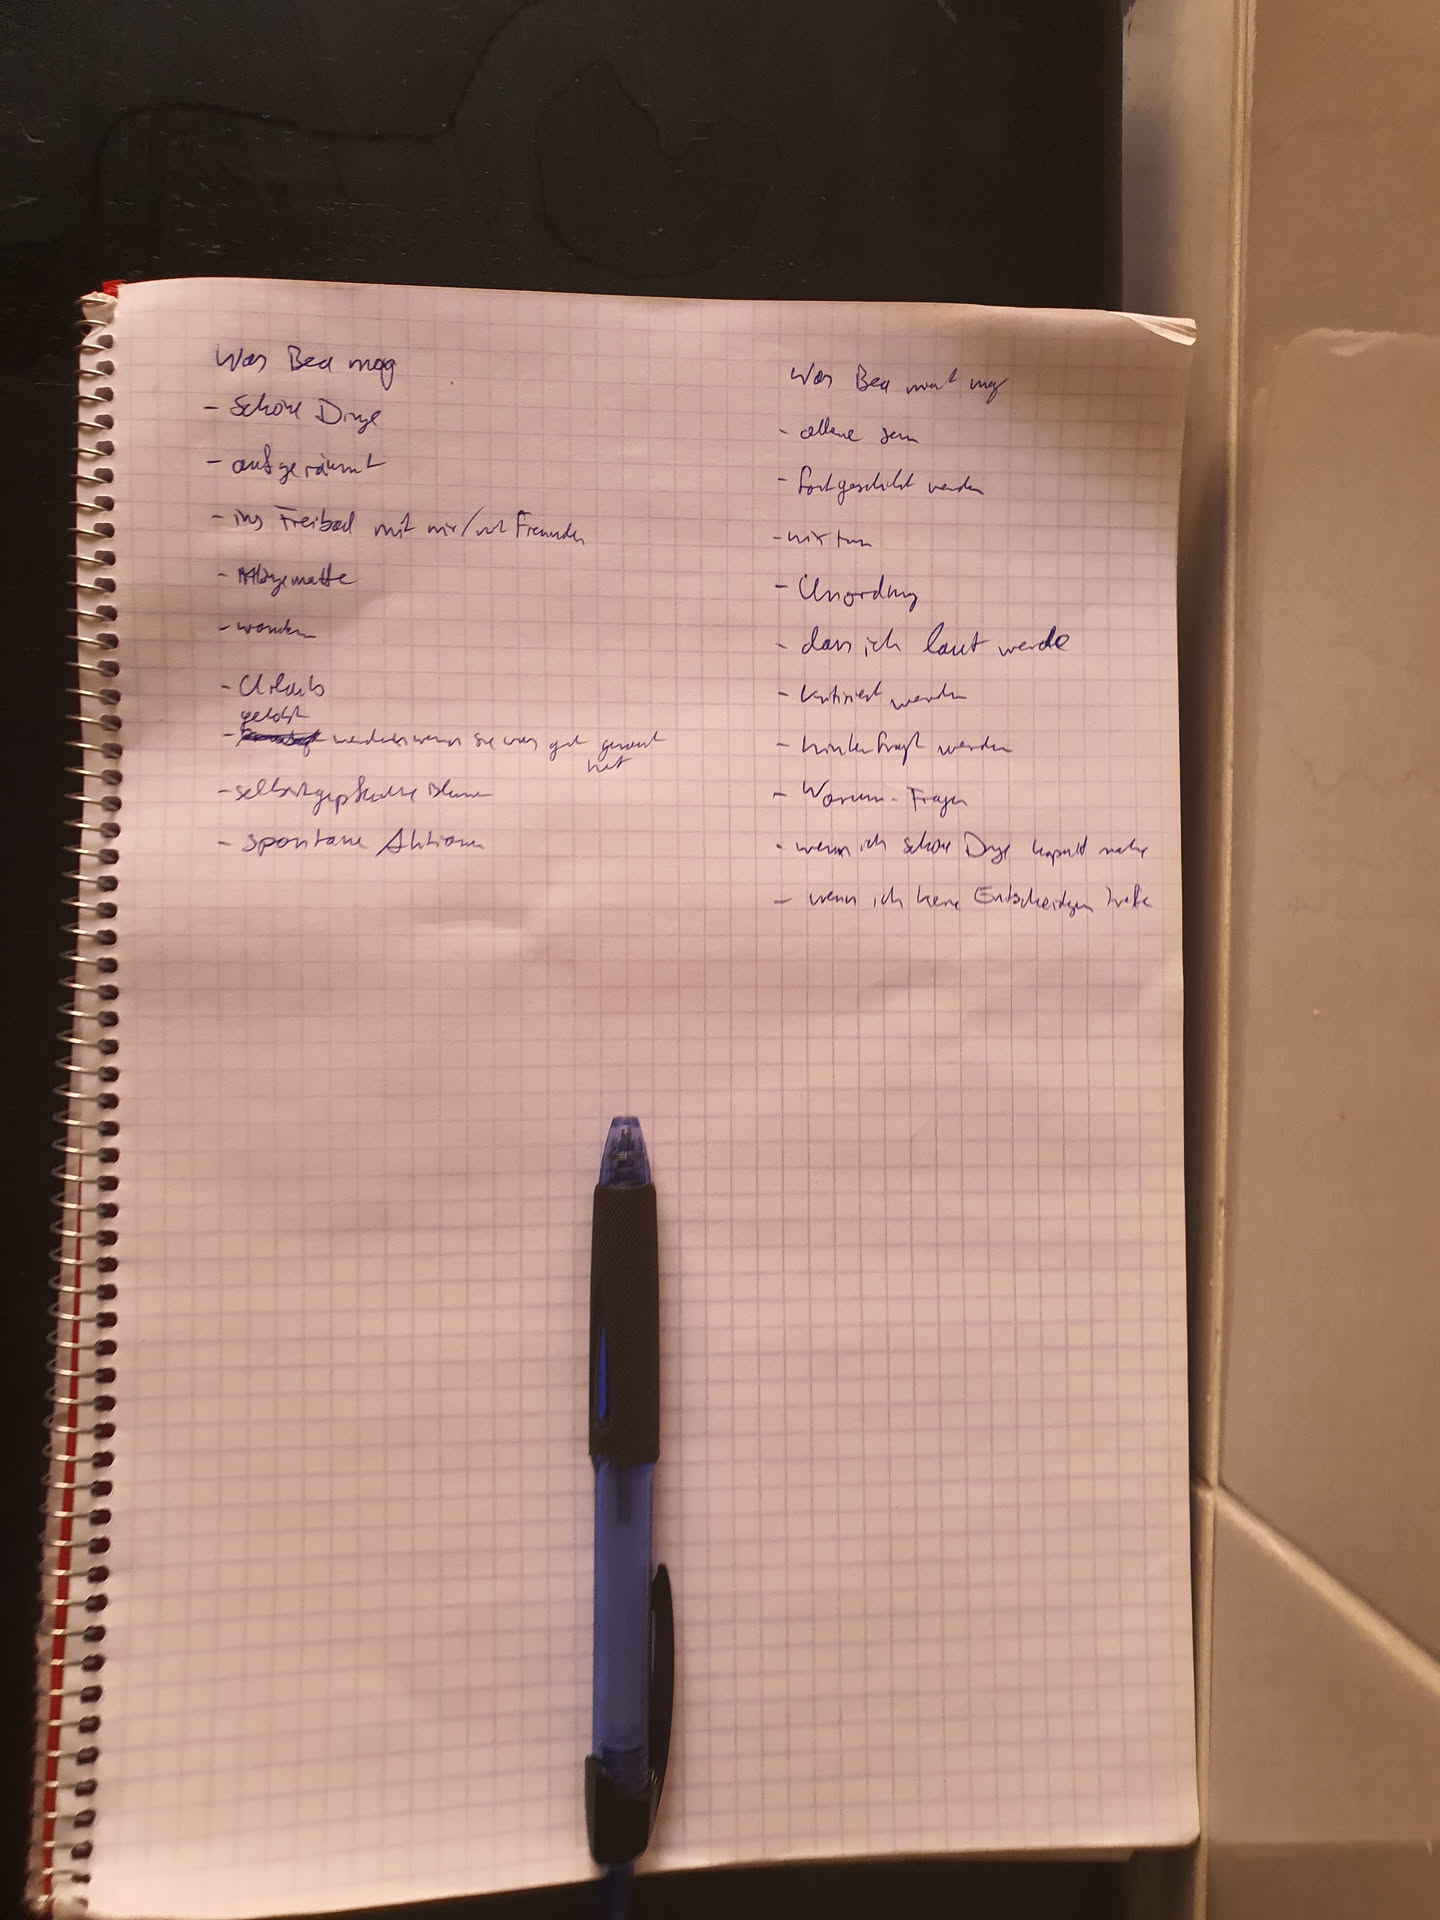 Was Bea mag
- Schöne Dinge
- aufgeräumt
- ins Freibad mit mir/mit Freunden
-
- wandern
- Urlaub
gelobt
- werden wenn sie was gut gemacht
hat
- selbstgepflückte Blumen
- spontane Aktionen
Was Bea nicht mag
- alleine sein
- fortgeschickt werden
- nix tun
- Unordnung
- dass ich laut werde
- kritisiert werden
- hinterfragt werden
- Warum-Fragen
- wenn ich schöne Dinge kaputt mache
- wenn ich keine Entscheidungen treffe